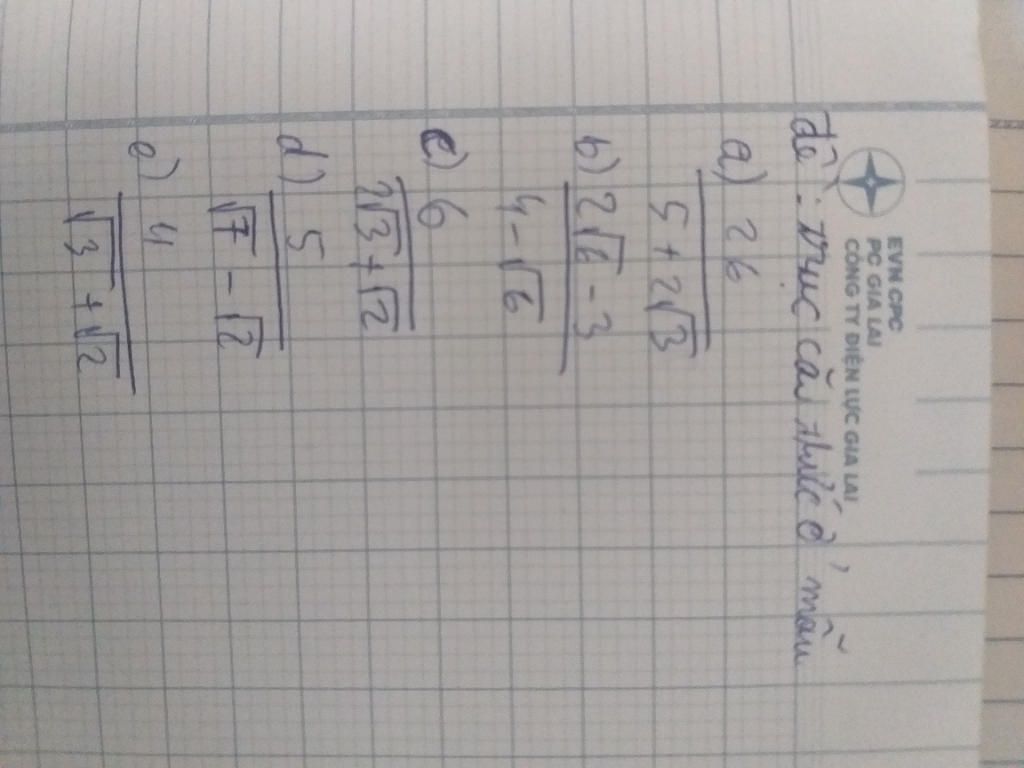 EVN CPC
PC GIA LAI
CÔNG TY ĐIỆN LỰC GIA LAI
đề : Trục căn thức ở mẫu
a) 26
5 + 2√3
b) 2√6 - 3
4 - √6
c) 6
2√3 + √2
d) 5
√7 - √2
e) 4
√3 + √2